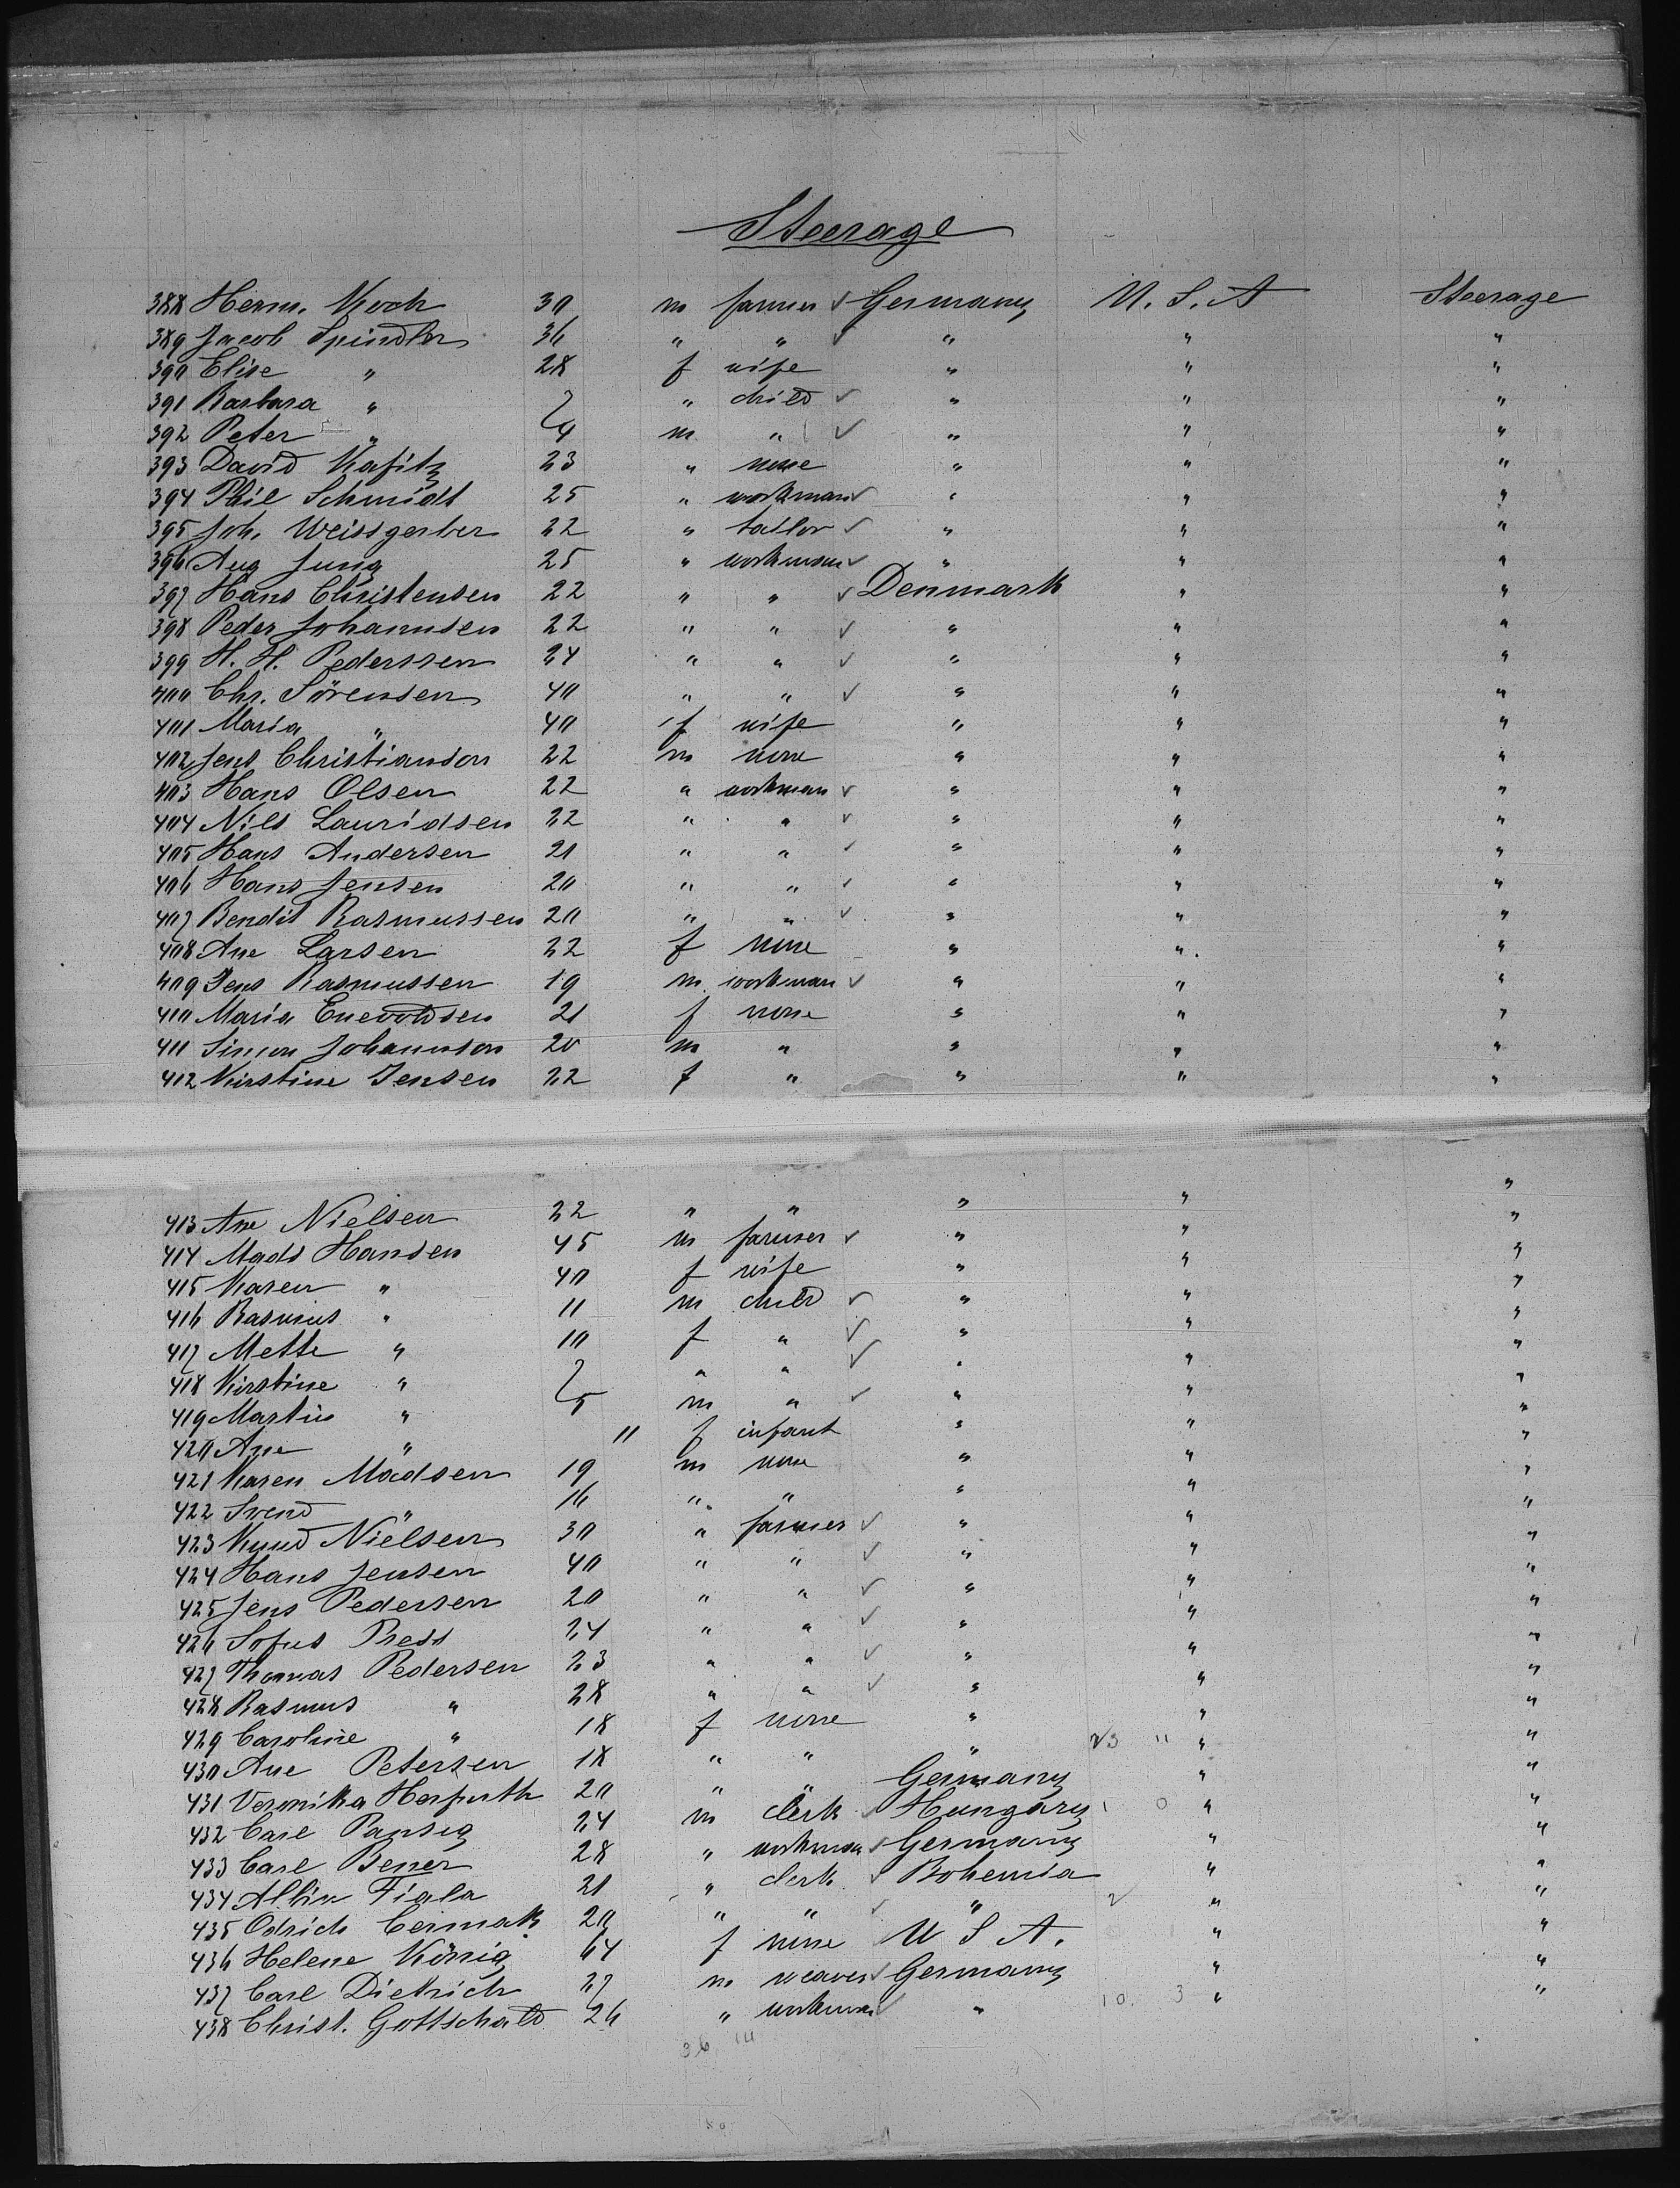 Steerage
388 Herm. Koch 30 m farmer ✓ Germany U. S. A Steerage
389 Jacob Spindler 36 " " ✓ " " "
390 Elise " 28 f wife " " "
391 Barbara " 7 " child ✓ " " "
392 Peter " 4 m " ✓ " " "
393 David Kafitz 23 " none " " "
394 Phil Schmidt 25 " workman ✓ " " "
395 Joh. Weissgerber 22 " tailor ✓ " " "
396 Aug Jung 25 " workman ✓ " " "
397 Hans Christensen 22 " " ✓ Denmark " "
398 Peder Johannsen 22 " " ✓ " " "
399 H. H. Pederssen 24 " " ✓ " " "
400 Chr. Sörensen 40 " " ✓ " " "
401 Maria " 40 f wife " " "
402 Jens Christianson 22 m none " " "
403 Hans Olsen 22 " workman ✓ " " "
404 Nils Lauridsen 22 " " ✓ " " "
405 Hans Andersen 21 " " ✓ " " "
406 Hans Jensen 20 " " ✓ " " "
407 Bendit Rasmussen 20 " " ✓ " " "
408 Ane Larsen 22 f none " " "
409 Jens Rasmussen 19 m workman ✓ " " "
410 Maria Enevoldsen 21 f none " " "
411 Simon Johannson 20 m " " " "
412 Kirstine Jensen 22 f " " " "
413 Ane Nielsen 22 " " " " "
414 Mads Hansen 45 m farmer ✓ " " "
415 Karen " 40 f wife " " "
416 Rasmus " 11 m child ✓ " " "
417 Mette " 10 f " ✓ " " "
418 Kirstine " 7 " " ✓ " " "
419 Martin " 5 m " ✓ " " "
420 Ane " 11 f infant " " "
421 Karen Madsen 19 m none " " "
422 Svend " 16 " " " " "
423 Knud Nielsen 30 " farmer ✓ " " "
424 Hans Jensen 40 " " ✓ " " "
425 Jens Pedersen 20 " " ✓ " " "
426 Sofus Press 24 " " ✓ " " "
427 Thomas Pedersen 23 " " ✓ " " "
428 Rasmus " 28 " " ✓ " " "
429 Caroline " 18 f none " " "
430 Ane Petersen 18 " " " " "
431 Veronika Herfurth 20 " " Germany " "
432 Carl Papsig 24 m clerk ✓ Hungary " "
433 Carl Bener 28 " workman ✓ Germany " "
434 Albin Fiala 21 " clerk ✓ Bohemia " "
435 Odrich Cermak 20 " " ✓ " " "
436 Helene König 64 f none U S A. " "
437 Carl Dietrich 27 m weaver ✓ Germany " "
438 Christ. Gottschald 26 " workman ✓ " " "